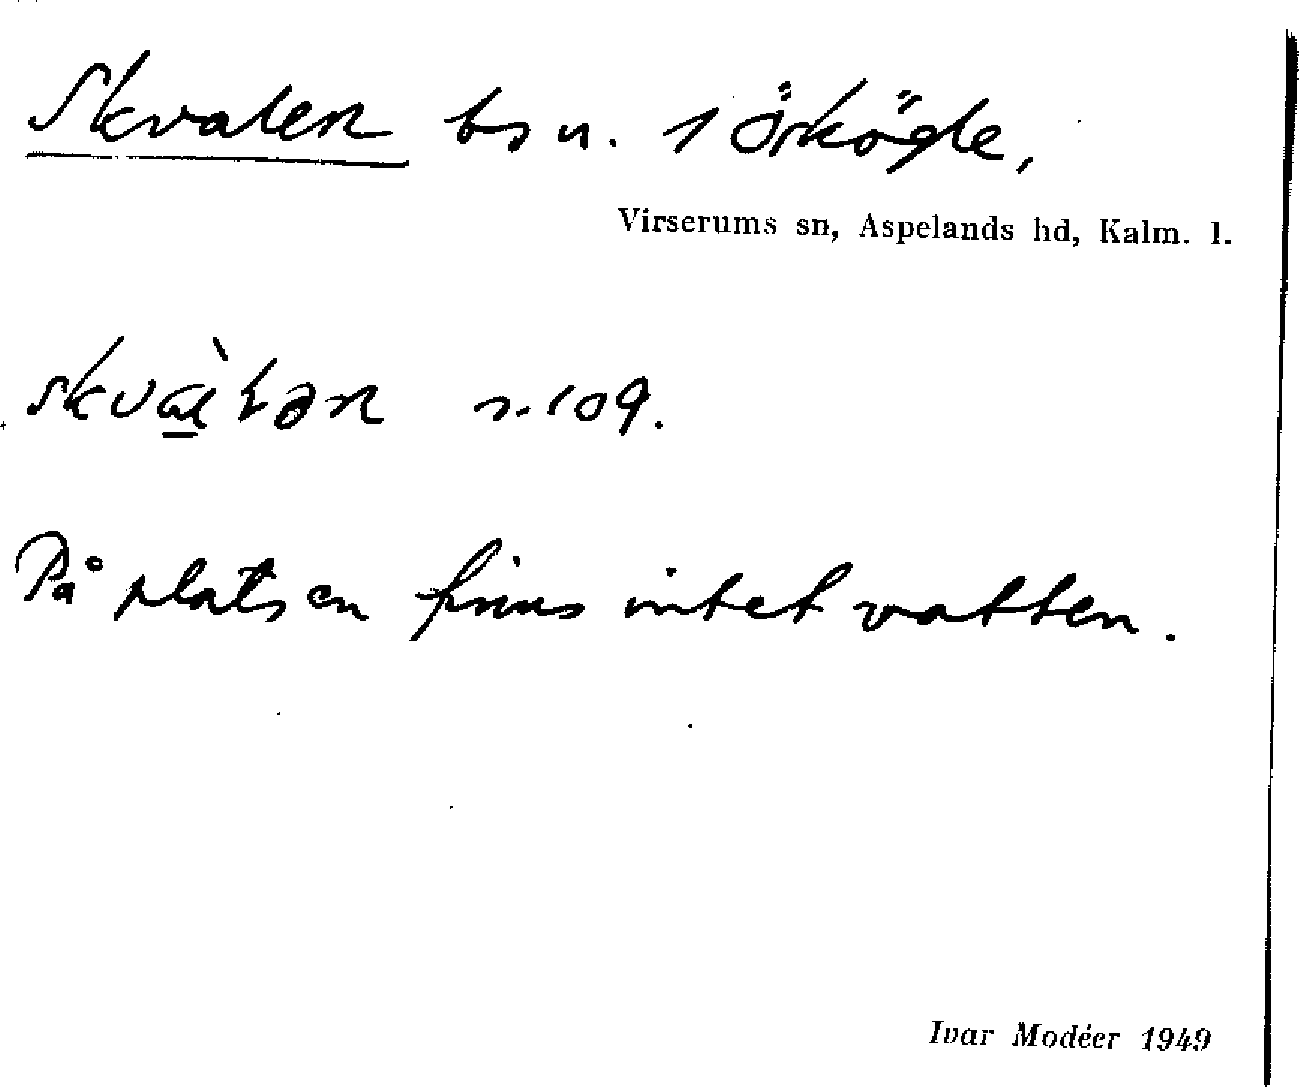 Skvalen bs u. 1 Örköde,
Virserums sn, Aspelands hd, Kalm. l.
s. 109.
På platsen finns intet vatten.
Ivar Modéer 1949